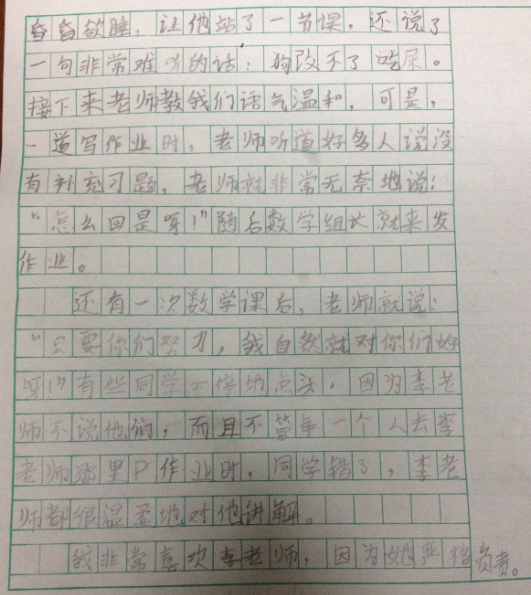 昏昏欲睡，让他站了一节课，还说了
一句非常难听的话：狗改不了吃屎。
接下来老师教我们语气温和，可是，
一道写作业时，老师听道好多人说没
有补充习题，老师就非常无奈地说：
“怎么回是呀！”随后数学组长就来发
作业。
还有一次数学课后，老师就说：
“只要你们努力，我自然就对你们好
呀！”有些同学不停地点头，因为李老
师不说他们，而且不管每一个人去李
老师那里P作业时，同学错了，李老
师都很温柔地对他讲解。
我非常喜欢李老师，因为她严格负责。